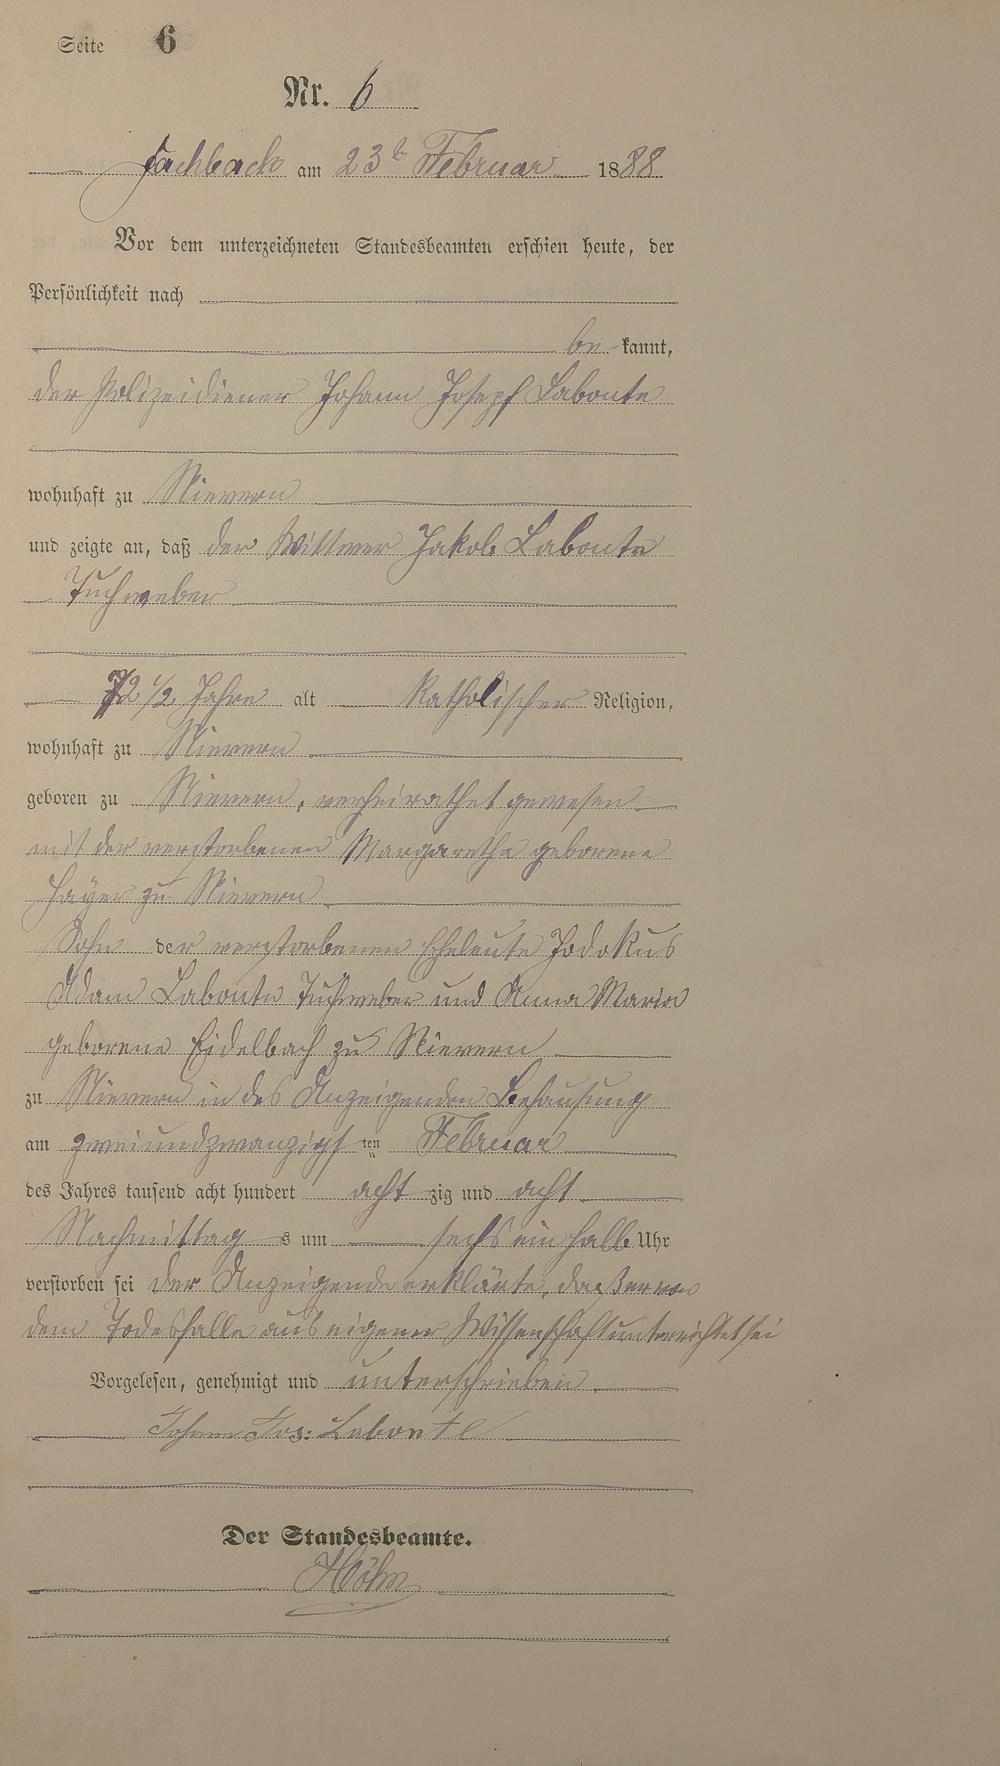 Seite 6
Nr. 6
Fachbach am 23t Februar 1888
Vor dem unterzeichneten Standesbeamten erschien heute, der
Persönlichkeit nach
be kannt,
der Polizeidiener Johann Josepf Labonte
wohnhaft zu Nievern
und zeigte an, daß der Wittwer Jakob Labonte
Tuchweber
72 1/2 Jahre alt Katholischer Religion,
wohnhaft zu Nievern
geboren zu Nievern, verheirathet gewesen
mit der verstorbenen Margaretha geborene
Hayer zu Nievern
Sohn der verstorbenen Eheleute Jodokus
Adam Labonte Tuchweber und Anna Maria
geborene Eidelbach zu Nievern
zu Nievern in des Anzeigenden Behausung
am zweiundzwanzigsten Februar
des Jahres tausend acht hundert achtzig und acht
Nachmittags um sechs ein halb Uhr
verstorben sei der Anzeigende erklärte, daß er von
dem Todesfalle aus eigener Wissenschaft unterrichtet sei
Vorgelesen, genehmigt und unterschrieben
Johann Jos: Labonte
Der Standesbeamte.
Höhn